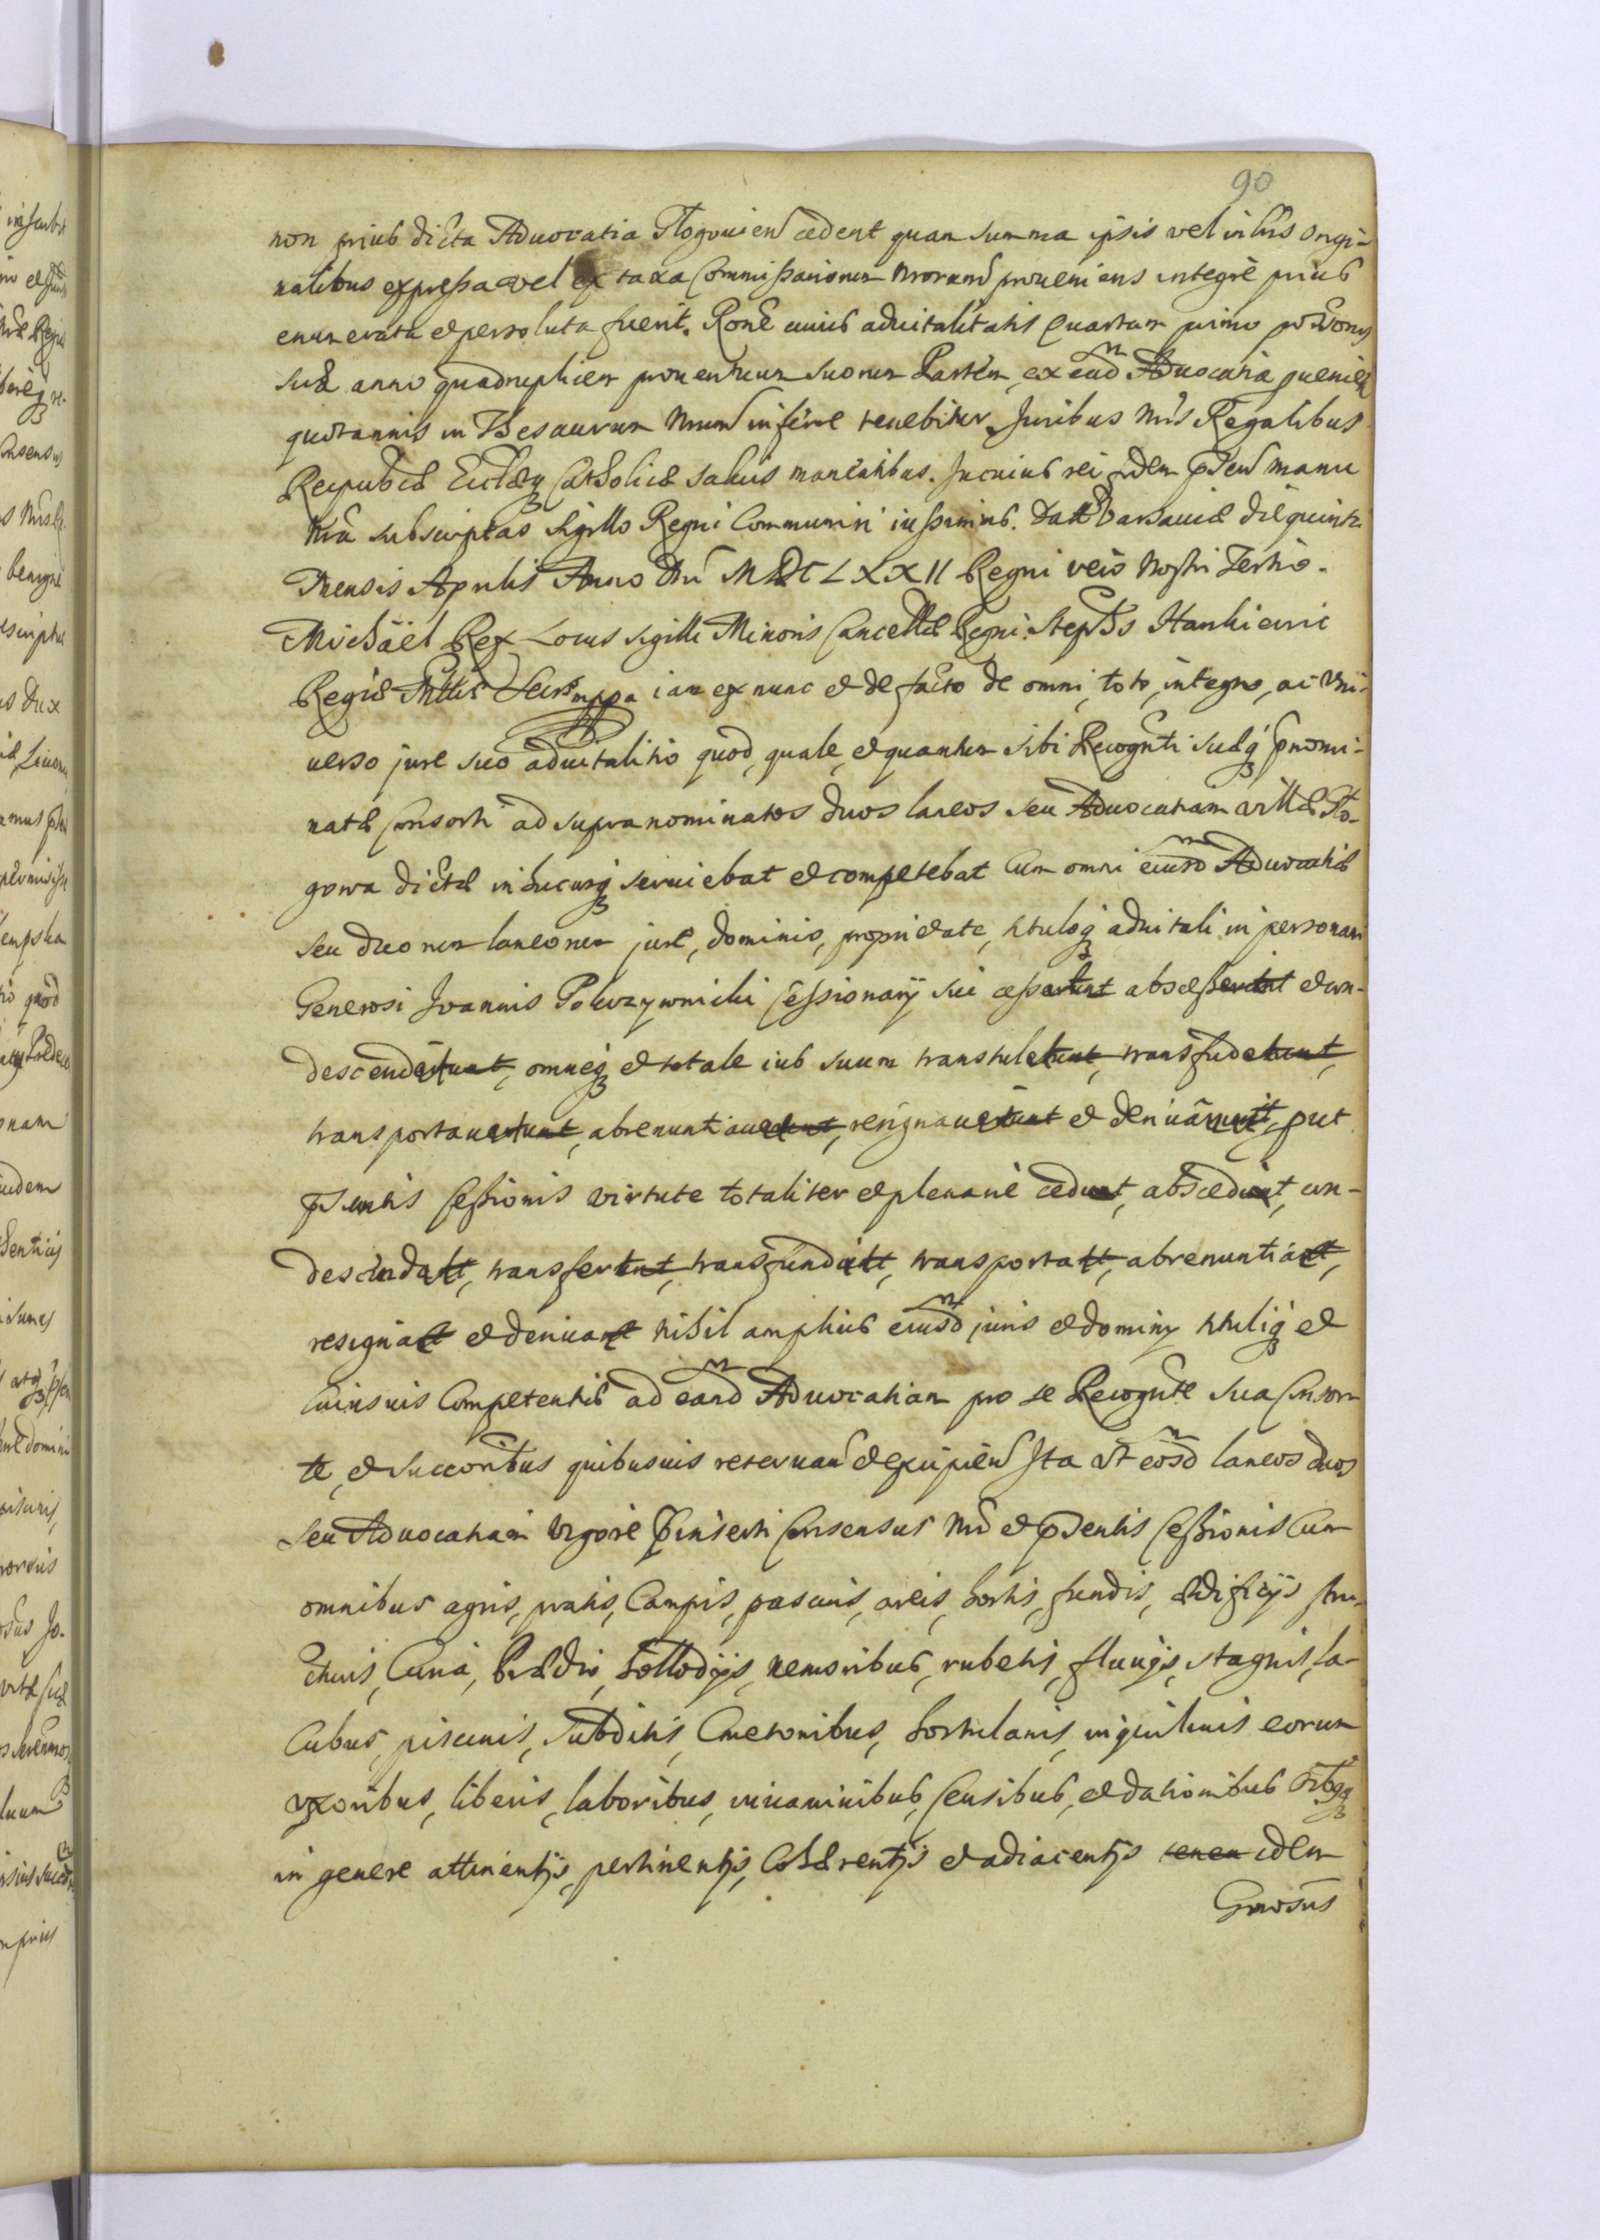 90
non prius dicta Advocatia Stogovien cedent quam summa ipsis vel in lris origi-
nalibus expressa vel ex taxa Commissariorum nrorum proveniens integrè prius
enumerata et persoluta fuerit. Rone cuius advitalitatis quartam primo possessionis
suæ anno quadruplicem proventuum suorum Partem ex ead Advocatia
quotannis in Thesaurum nrum inferre tenebitur. Juribus nris Regalibus
Reipubcæ Ecclæq Catholicæ salvis manentibus. In cuius rei fidem psen manu
nra subscriptas sigillo Regni Communiri iussimus. Dat Varsaviæ die quinta
Mensis Aprilis Anno Dni MDCLXXII Regni verò nostri Tertio.
Michaël Rex Locus sigilli Minoris Cancellæ Regni. Stephs Hankiewic
Regiæ Mttis Secrs mppa iam ex nunc et de facto de omni, toto, integro, ac vni-
verso jure suo advitalitio quod, quale, et quantum sibi Recognti suæq pnomi-
natæ Consorti ad supranominatos duos laneos seu Advocatiam villæ Sto-
gowa dictæ in hucusq serviebat et competebat Cum omni eiusd Advocatiæ
seu duorum laneorum jure, dominio, proprietate, tituloq advitali in personam
Generosi Joannis Pokrzywnicki Cessionarij sui cesserunt abscesserunt et con-
descenderunt, omneq et totale ius suum transtulerunt, transfuderunt,
transportaverunt, abrenuntiaverunt, resignaverunt et derivârunt, put
psentis Cessionis virtute totaliter et plenariè cedunt, abscedunt, con-
descendatt, transferunt, transfundatt, transportatt, abrenuntiatt,
resignatt et derivant nihil amplius eiusd juris et dominij tituliq et
Cuiusvis Competentiæ ad eand Advocatiam pro se Recognte sua Consor-
te, et succoribus quibusvis reservan et excipien Ita vt eosd laneos duos
seu Advocatiam vigore pinserti Consensus nri et psentis Cessionis Cum
omnibus agris, pratis, Campis, pascuis, areis, hortis, fundis, ædificijs stru-
cturis, Curia, Prædio, hollodijs, nemoribus, rubetis, fluvijs, stagnis, la-
Cubus, piscinis, subditis, Cmetonibus, hortulanis, inquilinis eorum
vxoribus, liberis, laboribus, vivaminibus, Censibus, et dationibus oibsq
in genere attinentijs, pertinentijs, Cohærentijs et adiacentijs tenen idem
Gnosus